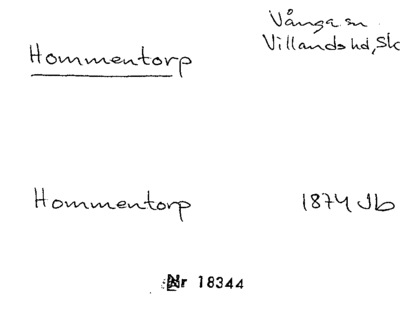 Vånga sn
Hommentorp
Villands hd, Sk
Hommentorp 1874 Jb
Nr 18344